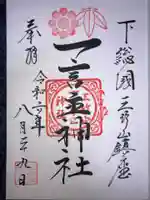 下総國三竹山鎮座
一言主神社
奉拝
令和六年
八月二十九日